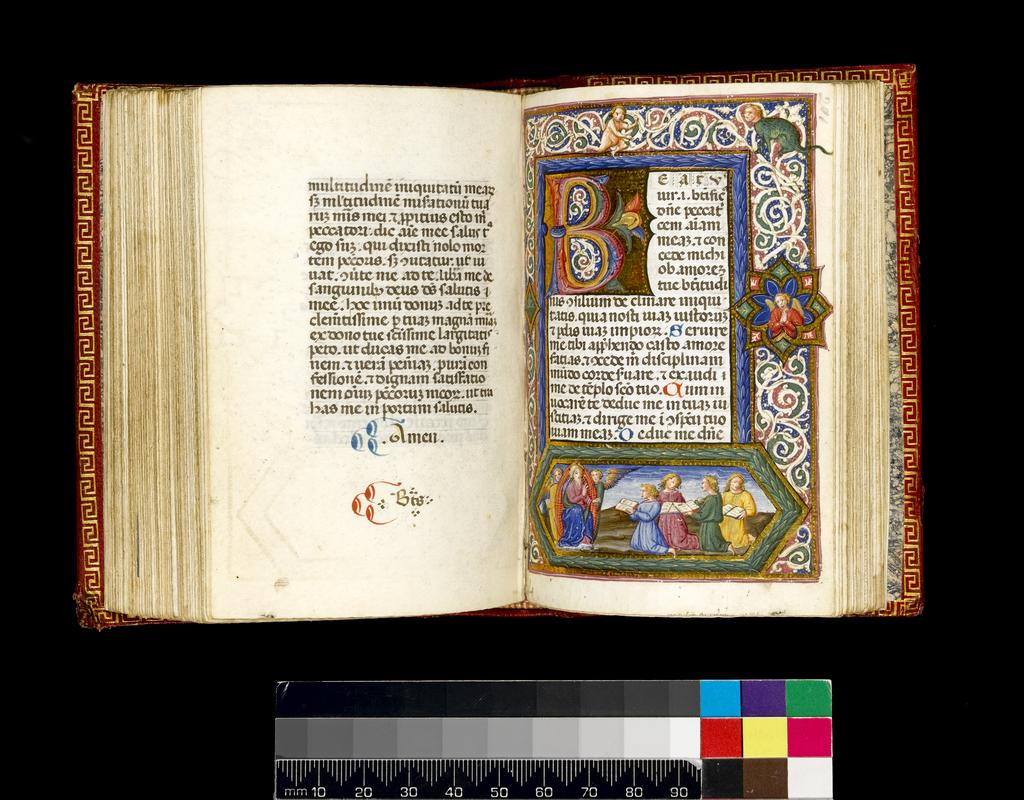 multitudinē iniquitatū meaꝝ
ſꝫ mĺtitudinē miſationū tua
ꝝ miß mei ⁊ ꝓpitius eſto m̄
peccatori. dic aīe mee ſalus t̄
ego ſuꝫ. qui dixiſti nolo mor
tem pctoris. ſꝫ ꝯutatur. ut ui
uat. ꝯuīte me ad te. libā me de
ſanguinibꝫ deus ds ſalutis
mee. hoc unū donuꝫ ad te
clementiſſime ꝑ tuaꝫ magnā
ex dono tue ſctiſſime largitatis
peto. ut ducas me ad bonuꝫ fi
nem. ⁊ uerā peniaꝫ. purā con
feſſionē. ⁊ dignam ſatiſfatio
nem oīuꝫ pctoruꝫ meoꝝ. ut
has me in portum ſalutis.
Amen.
Bts
B E A T V
dn̄e peccat
tem aīam
meaꝫ. ⁊ con
cede michi
ob amoreꝫ
tue btītudi
nis ꝯſilium declinare iniqui
tatis. quia noſti uiaꝫ iuſtoruꝫ
⁊ pdis uiaꝫ impioꝝ. Seruire
me tibi apphendo caſto amore
facias. ⁊ ꝯcede m̄ diſciplinam
mūdo corde ſuare. ⁊ exaudi
me de tēplo ſcō tuo. Cum in
uocarē te deduc me in tuaꝫ iu
ſtitiaꝫ ⁊ dirige me ī ꝯſpcū tuo
uiam meaꝫ. Deduc me dn̄e
mm 10 20 30 40 50 60 70 80 90